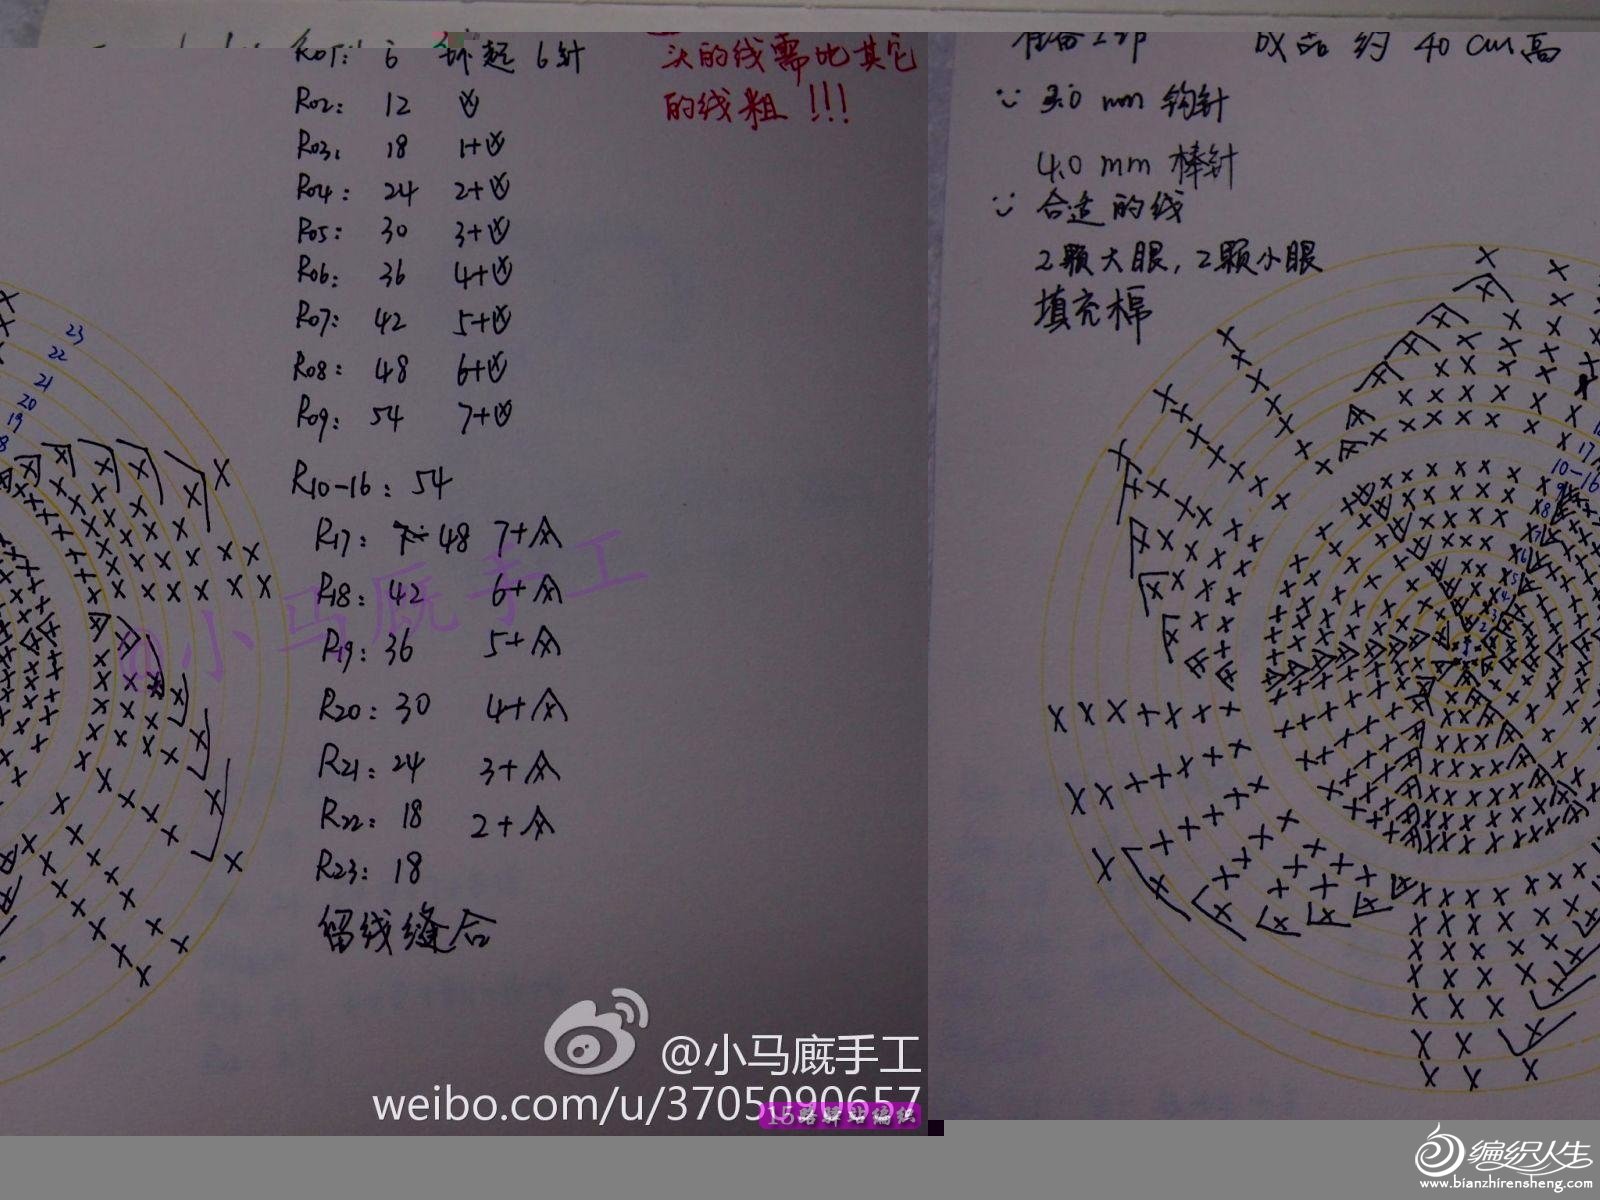 R01: 6 环起6针
R02: 12 ꓤ
R03: 18 1+
R04: 24 2+
R05: 30 3+
R06: 36 4+
R07: 42 5+
R08: 48 6+
R09: 54 7+
R10-16: 54
R17: 48 7+
R18: 42 6+
R19: 36 5+
R20: 30 4+
R21: 24 3+
R22: 18 2+
R23: 18
留线缝合
头的线需比其它
的线粗!!!
23
22
21
20
19
@小马厩手工
@小马厩手工
weibo.com/u/3705090657
15路驿站编织
准备工作 成品约40cm高
3.0mm钩针
4.0mm棒针
合适的线
2颗大眼,2颗小眼
填充棉
17
10-16
9
8
7
6
5
4
3
2
编织人生
www.bianzhirensheng.com